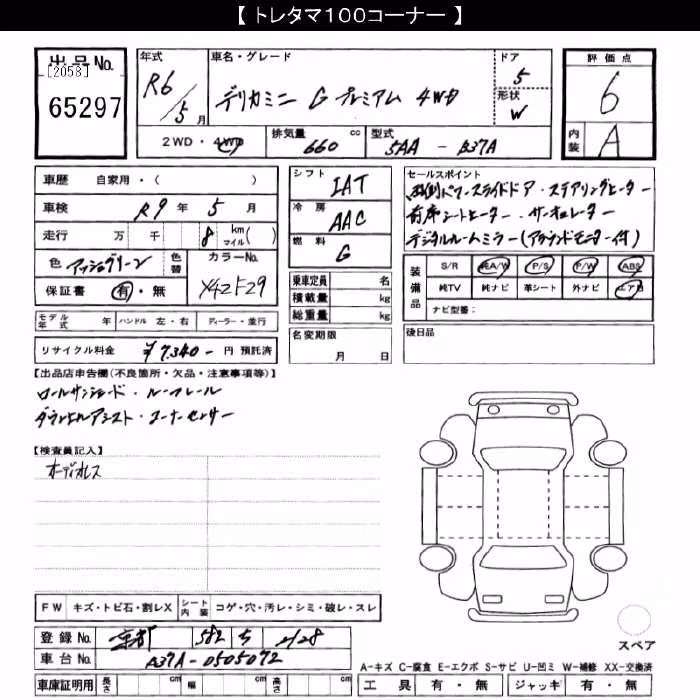 【 トレタマ100コーナー 】
出品No. 年式 車名・グレード ドア 評価点
[2058] R6 5 月 デリカミニ G プレミアム 4WD 5 6
65297 形状 W
2WD・4WD 排気量 660 cc 型式 5AA - B37A 内装 A
車歴 自家用・( )
車検 R9 年 5 月
走行 万 千 8 km マイル( )
色 アッシュグリーン 色替 カラーNo.
保証書 有・無 X42F29
モデル年式 年 ハンドル 左・右 ディーラー・並行
リサイクル料金 ¥7,340- 円 預託済
シフト IAT
冷房 AAC
燃料 G
乗車定員 名
積載量 kg
総重量 kg
名変期限
月 日
セールスポイント
両側パワースライドドア・ステアリングヒーター
前席シートヒーター・サーキュレーター
デジタルルームミラー(アラウンドモニター付)
装備品 S/R 純A/W P/S P/W ABS
純TV 純ナビ 革シート 外ナビ エアB
ナビ型番:
後日品
【出品店申告欄(不良箇所・欠品・注意事項等)】
ロールサンシェード・ルーフレール
ダウンヒルアシスト・コーナーセンサー
【検査員記入】
オーディオレス
FW キズ・トビ石・割レX シート内装 コゲ・穴・汚レ・シミ・破レ・スレ
登録No. 京都 582 ち 2128
車台No. B37A-0505072
車庫証明用 長さ cm 幅 cm 高さ cm
スペア
A-キズ C-腐食 E-エクボ S-サビ U-凹ミ W-補修 XX-交換済
工具 有・無 ジャッキ 有・無